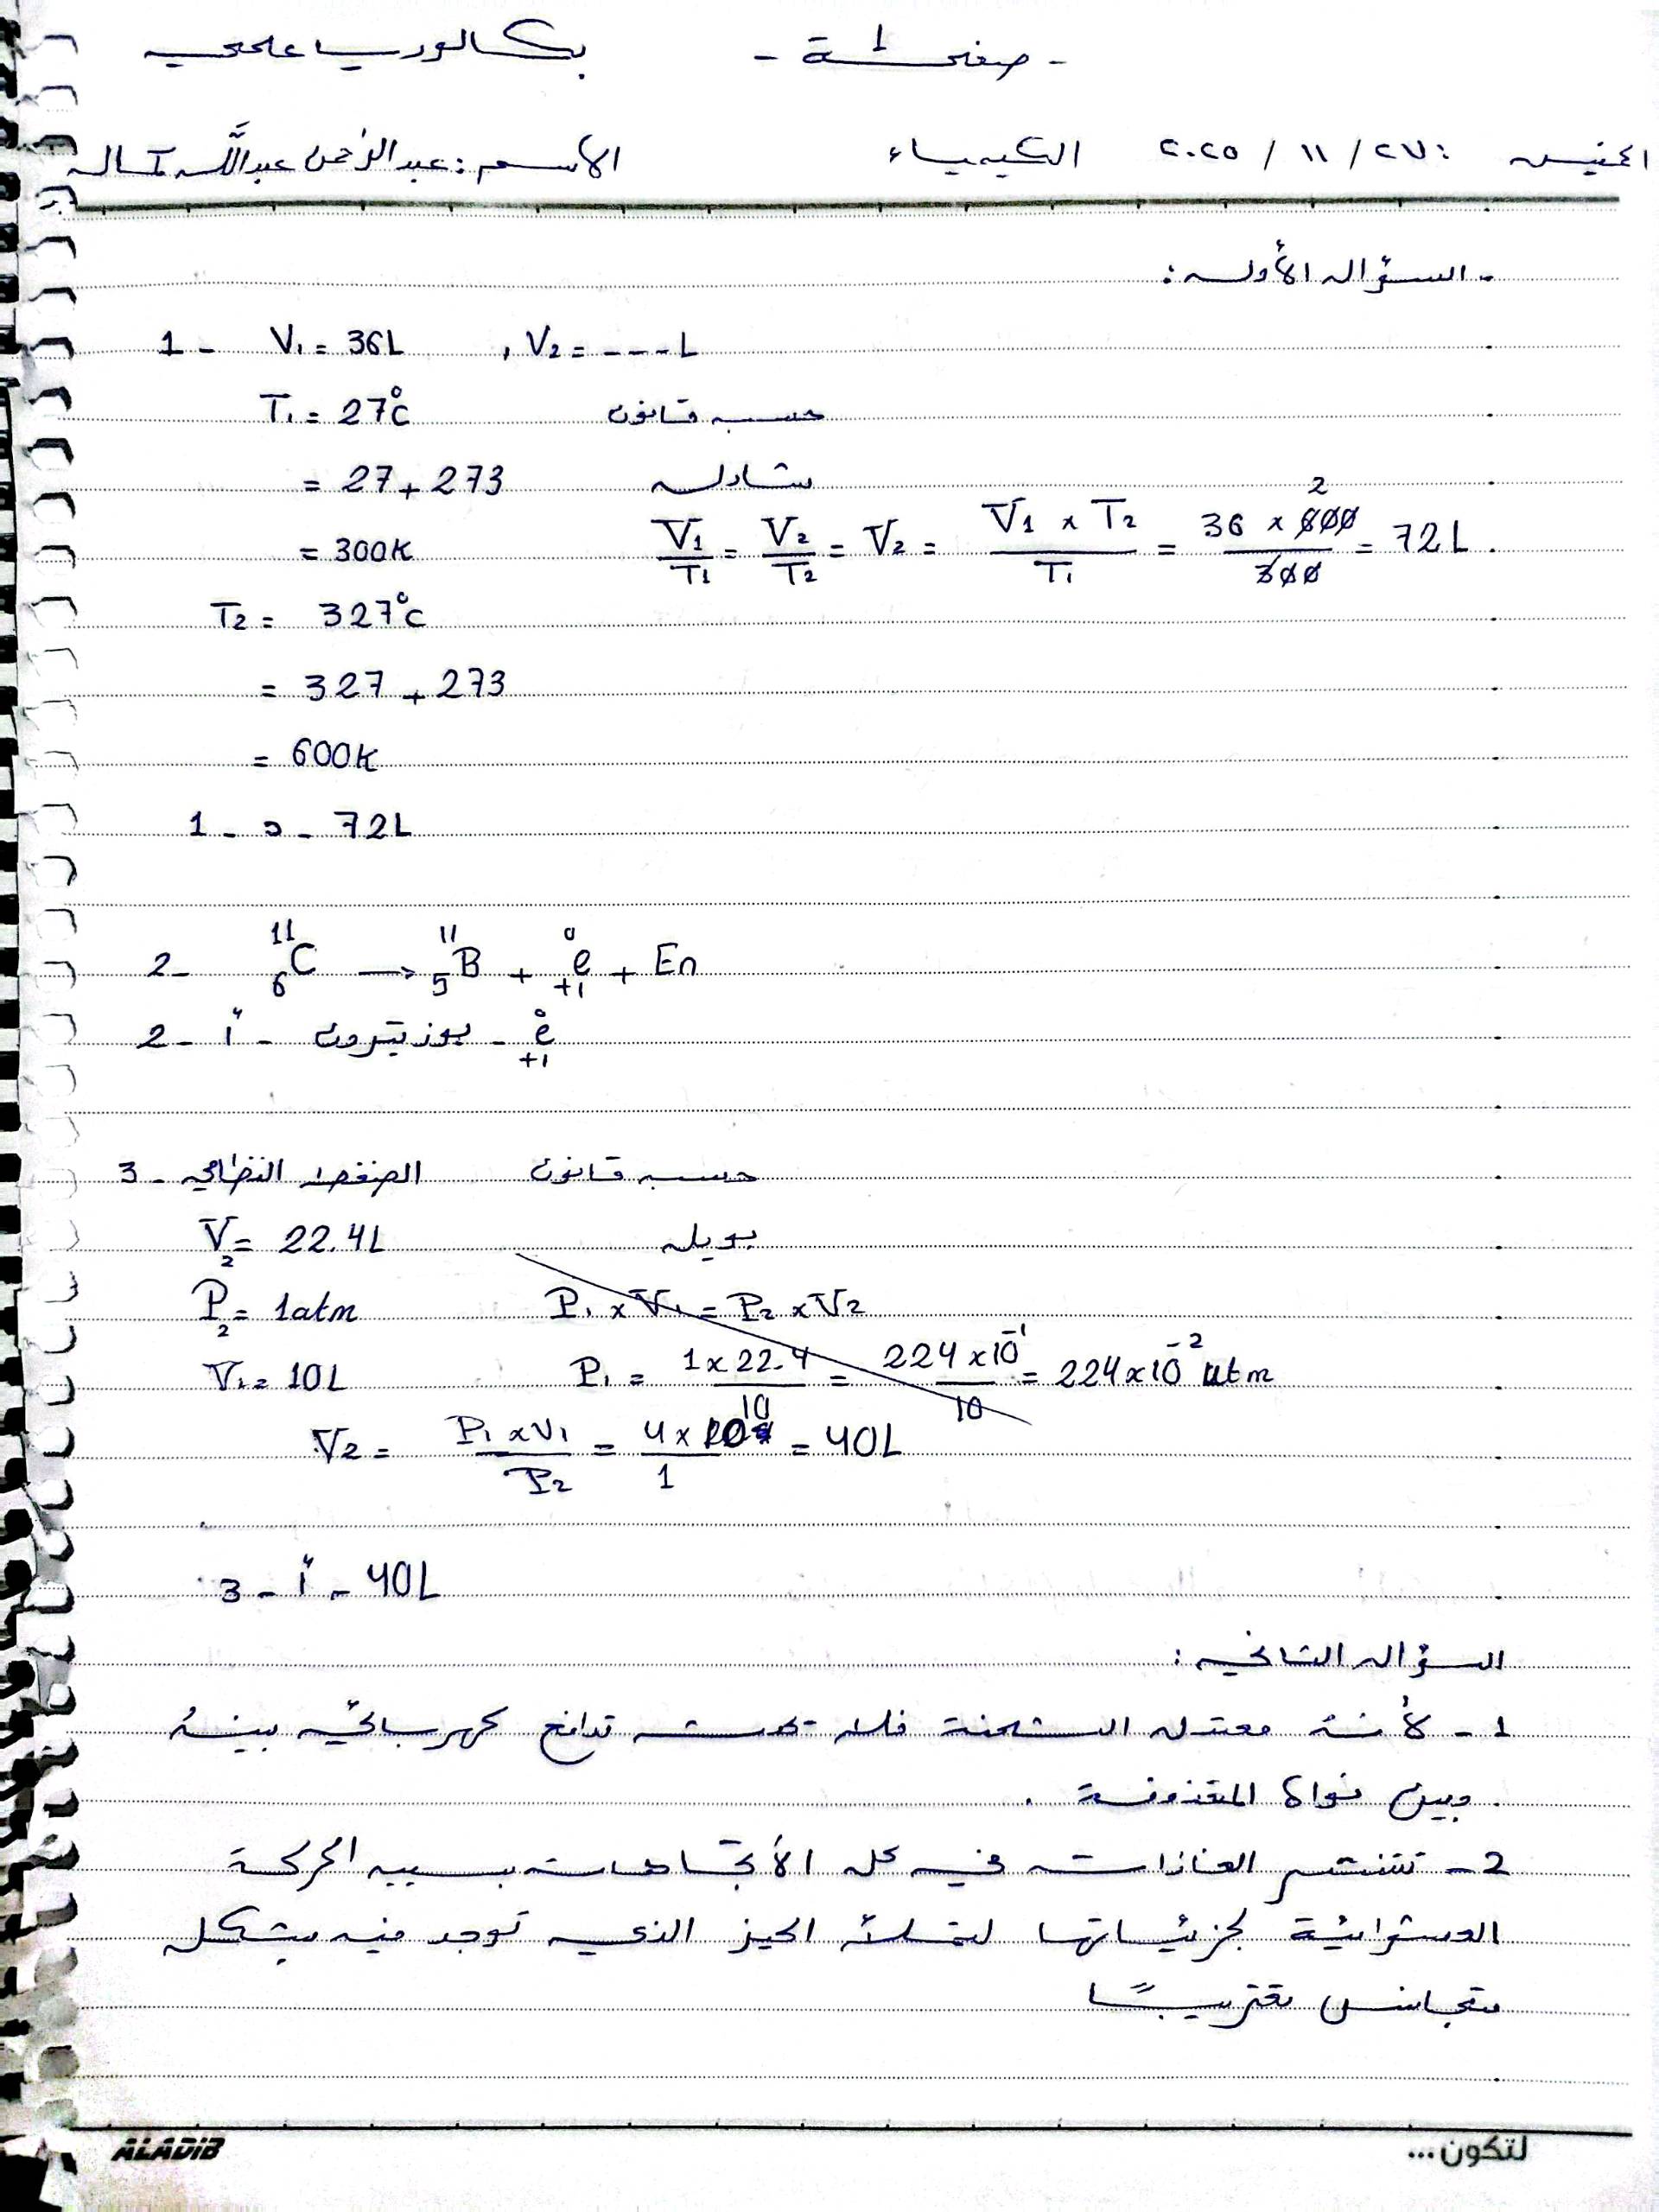 - صفحـة 1 -
بكالوريا علمي
الخميس : ٢٧ / ١١ / ٢٠٢٥
الكيمياء
الاسم : عبد الرحمن عبد اللَّه
- السؤال الأول :
1 - V₁ = 36L , V₂ = ---- L
T₁ = 27°C حسب قانون
= 27 + 273 شارل
= 300K V₁/T₁ = V₂/T₂ = V₂ = V₁ × T₂ / T₁ = 36 × 600 / 300 = 72L .
2
T₂ = 327°C
= 327 + 273
= 600K
1 - د - 72L
2 - ¹¹₆C → ¹¹₅B + ⁰₊₁e + En
2 - أ - بوزيترون - ⁰₊₁e
3 - الضغط النظامي حسب قانون
V₂ = 22.4L بويل
P₂ = 1atm P₁ × V₁ = P₂ × V₂
V₁ = 10L P₁ = 1 × 22.4 / 10 = 224 × 10⁻¹ / 10 = 224 × 10⁻² atm
V₂ = P₁ × V₁ / P₂ = 4 × 10 / 1 = 40L
3 - أ - 40L
السؤال الثاني :
1 - لأنه معتدل الشحنة فلا يحدث تدافع كهربائي بينه
وبين نواة المقذوفة .
2 - تنتشر الغازات في كل الأتجاهات بسبب الحركة
العشوائية لجزيئاتها لتملأ الحيز الذي توجد فيه بشكل
متجانس تقريبًا
ALADIB
لتكون ...